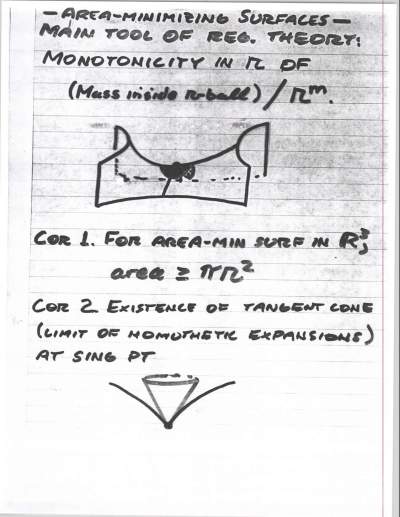 — AREA-MINIMIZING SURFACES —
MAIN TOOL OF REG. THEORY:
MONOTONICITY IN r OF
(Mass inside r-ball) / r^m.
COR 1. FOR AREA-MIN SURF IN R^3,
area ≥ πr²
COR 2 EXISTENCE OF TANGENT CONE
(LIMIT OF HOMOTHETIC EXPANSIONS)
AT SING PT